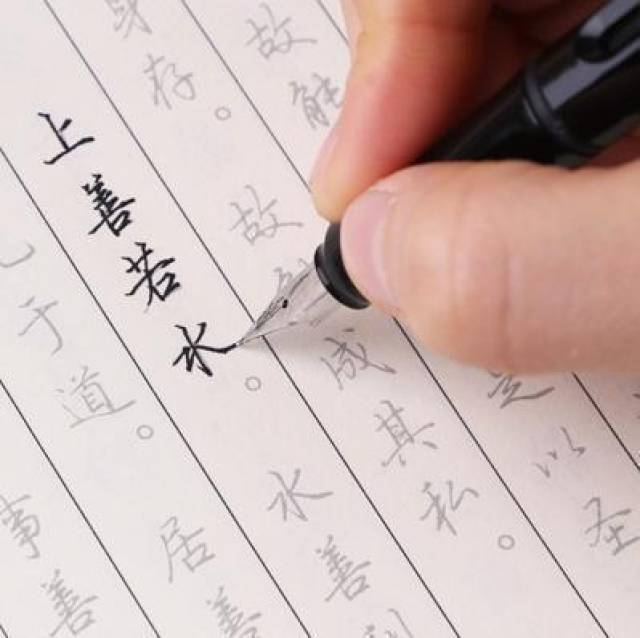 故能是以圣
身存。故能成其私。
上善若水。水善利
于道。居善
事善